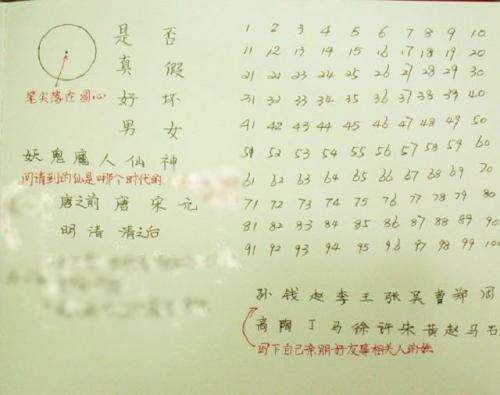 是 否
真 假
笔尖落在圆心
好 坏
男 女
妖 鬼 魔 人 仙 神
问请到的仙是哪个时代的
唐之前 唐 宋 元
明 清 清之后
1 2 3 4 5 6 7 8 9 10
11 12 13 14 15 16 17 18 19 20
21 22 23 24 25 26 27 28 29 30
31 32 33 34 35 36 37 38 39 40
41 42 43 44 45 46 47 48 49 50
51 52 53 54 55 56 57 58 59 60
61 62 63 64 65 66 67 68 69 70
71 72 73 74 75 76 77 78 79 80
81 82 83 84 85 86 87 88 89 90
91 92 93 94 95 96 97 98 99 100
孙 钱 赵 李 王 张 吴 曹 郑 周
高 陶 丁 马 徐 许 朱 黄 赵 马 石
写下自己亲朋好友等相关人的姓